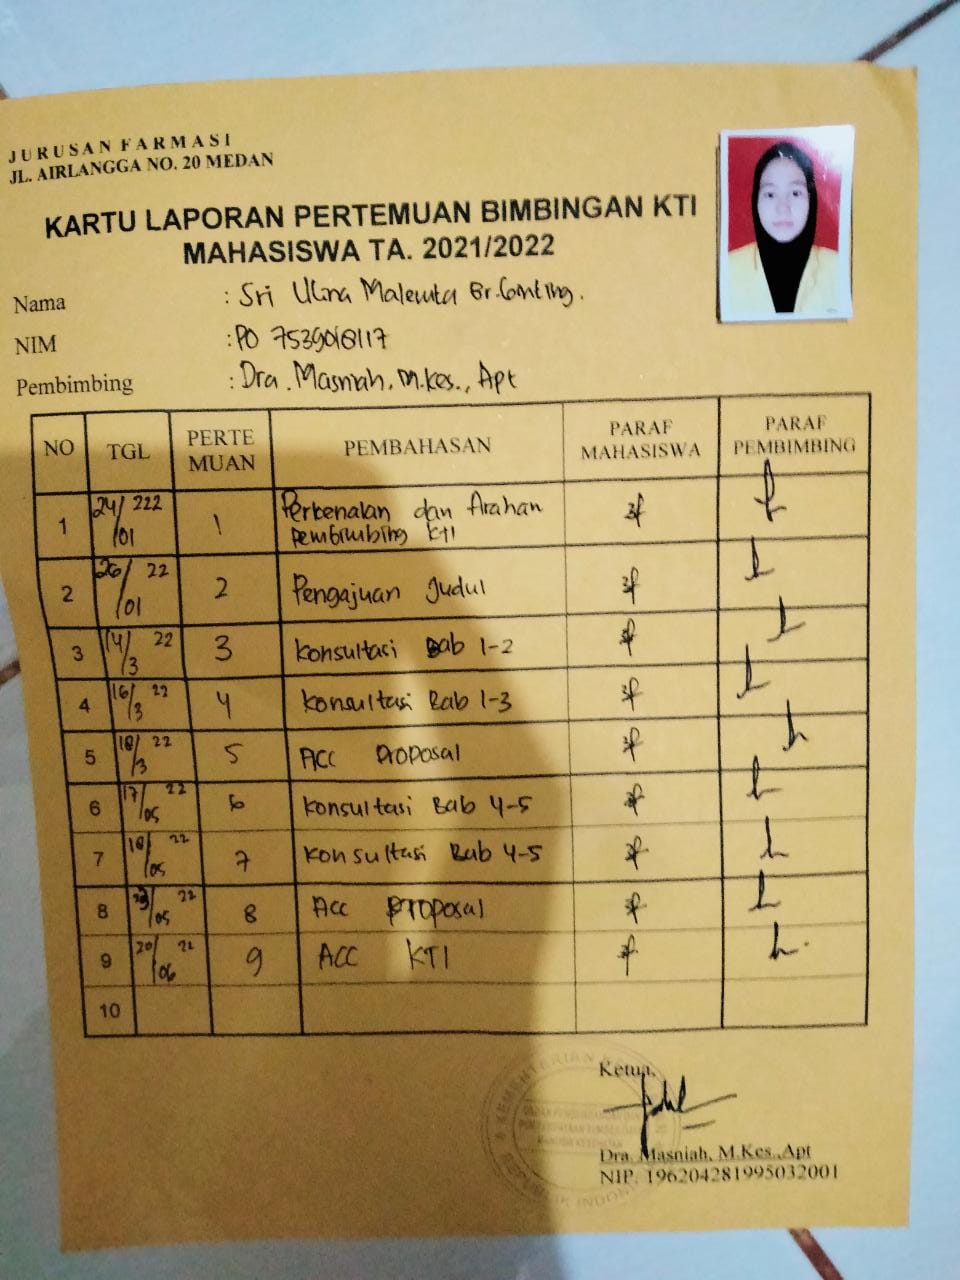 JURUSAN FARMASI
JL. AIRLANGGA NO. 20 MEDAN
KARTU LAPORAN PERTEMUAN BIMBINGAN KTI
MAHASISWA TA. 2021/2022
Nama : Sri Ulina Malemta Br. Ginting.
NIM : PO 7539018117
Pembimbing : Dra. Masniah, M.Kes., Apt
NO TGL PERTE MUAN PEMBAHASAN PARAF MAHASISWA PARAF PEMBIMBING
1 24/01 222 1 Perkenalan dan Arahan
pembimbing KTI
2 26/01 22 2 Pengajuan Judul
3 14/3 22 3 Konsultasi Bab 1-2
4 16/3 22 4 Konsultasi Bab 1-3
5 18/3 22 5 ACC Proposal
6 17/05 22 6 Konsultasi Bab 4-5
7 18/05 22 7 Konsultasi Bab 4-5
8 23/05 22 8 Acc Proposal
9 20/06 22 9 ACC KTI
10
Ketua,
Dra. Masniah, M.Kes.,Apt
NIP. 196204281995032001